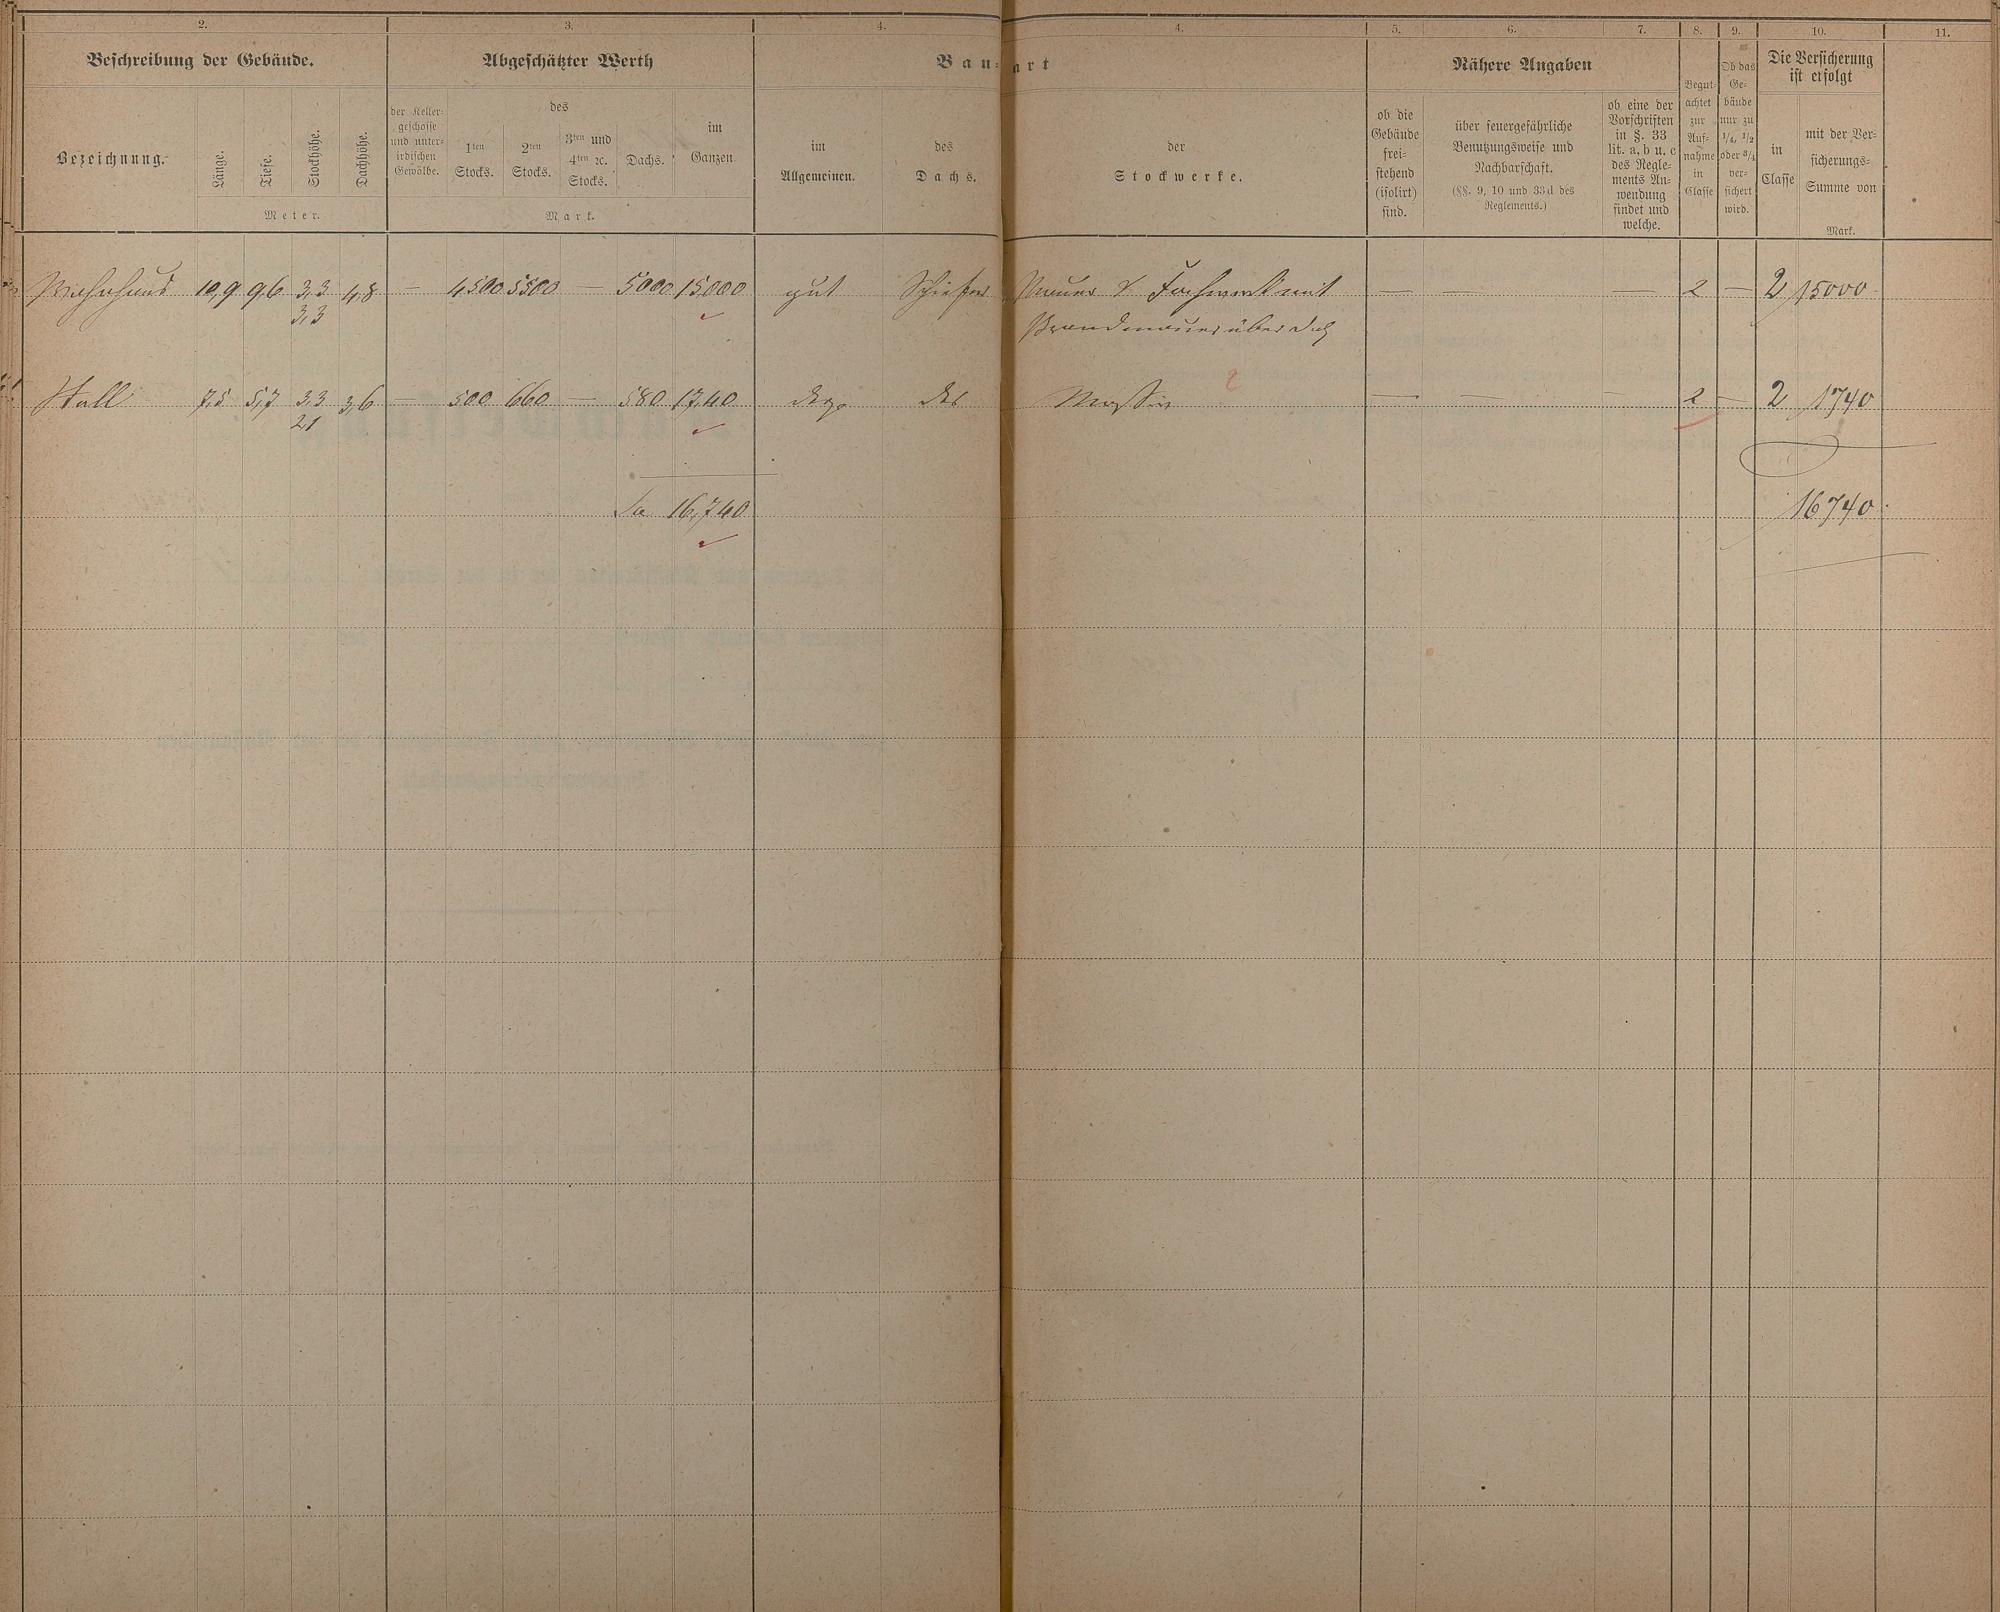 2. 3. 4. 4. 5. 6. 7. 8. 9. 10. 11.
Beschreibung der Gebäude. Abgeschätzter Werth Bau- art Nähere Angaben Die Versicherung ist erfolgt
Bezeichnung.
Länge.
Tiefe.
Stockhöhe.
Dachhöhe.
Meter.
der Keller-
geschosse
und unter-
irdischen
Gewölbe.
des
1ten
Stocks.
2ten
Stocks.
3ten und
4ten ꝛc.
Stocks.
Dachs.
im
Ganzen
Mark.
im
Allgemeinen.
des
Dachs.
der
Stockwerke.
ob die
Gebäude
frei-
stehend
(isolirt)
sind.
über feuergefährliche
Benutzungsweise und
Nachbarschaft.
(§§. 9, 10 und 33d des
Reglements.)
ob eine der
Vorschriften
in §. 33
lit. a, b u. c
des Regle-
ments An-
wendung
findet und
welche.
Begut-
achtet
zur
Auf-
nahme
in
Classe
Ob das
Ge-
bäude
nur zu
1/4, 1/2
oder 3/4
ver-
sichert
wird.
in
Classe
mit der Ver-
sicherungs-
Summe von
Mark.
Wohnhaus 10,9 9,6 3,3 4,8 — 4500 5500 — 5000 15,000 gut Schiefer Mauer & Fachwerk mit — — — 2 — 2 15000
3,3 Brandmauer über Dach
Stall 7,5 5,7 3,3 3,6 — 500 660 — 580 17,40 desg. des Massiv — — — 2 — 2 1740
21
Sa 16,740 16740.